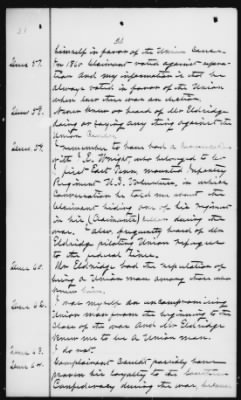 himself in favor of the Union cause.
Ques 57. In 1860 Claimant voted against separa-
tion and my information is that he
always voted in favor of the Union
when ever there was an election.
Ques 58. Never knew or heard of Mr Eldridge
doing or saying any thing against the
Union
Ques 59. I remember to have had a
with E. Wright, who belonged to the
first East Tenn mounted Infantry
Regiment U.S. Volunteers, in which
Conversation he told me about
Claimant hiding one of his regiment
in his (Claimants) during the
war. I also frequently heard of Mr
Eldridge piloting Union refugees
to the federal lines.
Ques 60. Mr Eldridge had the reputation of
being a Union man among those who
him.
Ques 62. I was myself an uncompromising
Union man from the beginning to the
Close of the war and Mr Eldridge
knew me to be a Union man.
Ques 63. I do not.
Ques 64. Complainant Could not possibly have
proven his loyalty to the Southern
Confederacy during the war, because